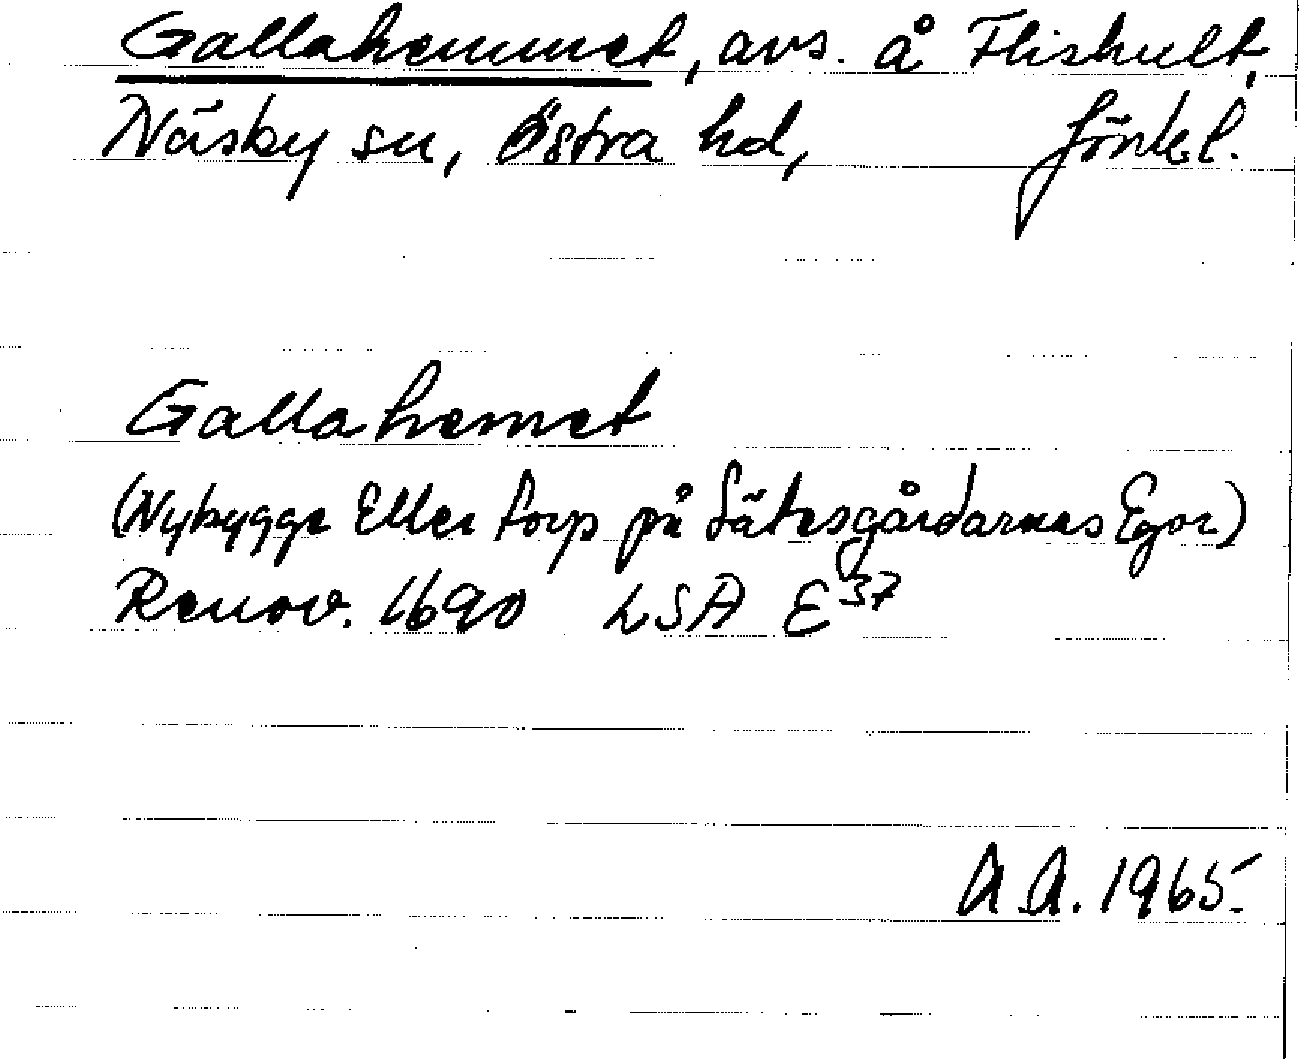 Gallahemmet, avs. å Flishult,
Näsby sn, Östra hd, Jönk.l.
Gallahemet
(Nybygge Eller torp på Sätesgårdarnas Egor)
Renov. 1690 LSA E37
A.A. 1965.